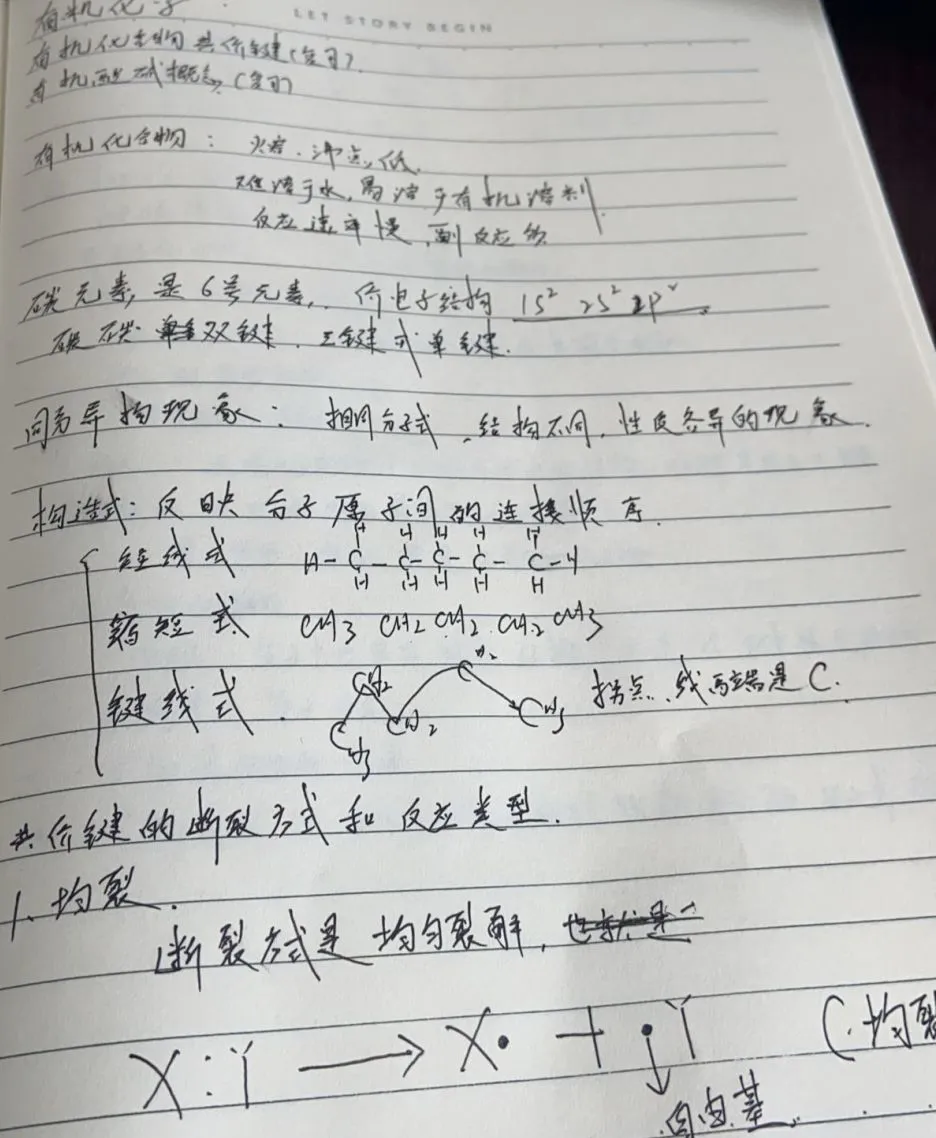 有机化学
LET STORY BEGIN
有机化合物共价键(复习)
有机酸碱概念(复习)
有机化合物: 火容.沸点,低.
难溶于水,易溶于有机溶剂
反应速率慢,副反应多
碳元素,是6号元素,.价电子结构 1S² 2S² 2P²
碳碳 双键.三键或单键.
同分异构现象: 相同分子式,结构不同,性质各异的现象.
构造式:反映分子原子间的连接顺序.
短线式
H H H H H
H-C-C-C-C-C-H
H H H H H
缩短式 CH3 CH2 CH2 CH2 CH3
键线式.
CH2 CH2
CH3 CH2 CH3 拐点、线两端是C.
共价键的断裂方式和反应类型.
1、均裂.
断裂方式是均匀裂解,也就是
X:Y → X· + ·Y (·均裂
自由基